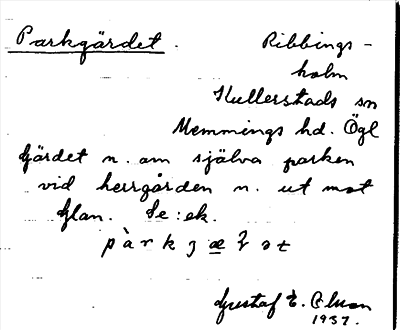 Parkgärdet. Ribbings-
holm
Kullerstads sn
Memmings hd. Ögl
Gärdet n. om själva parken
vid herrgården n. ut mot
Glan. Se: ek.
Gustaf E.
1937.